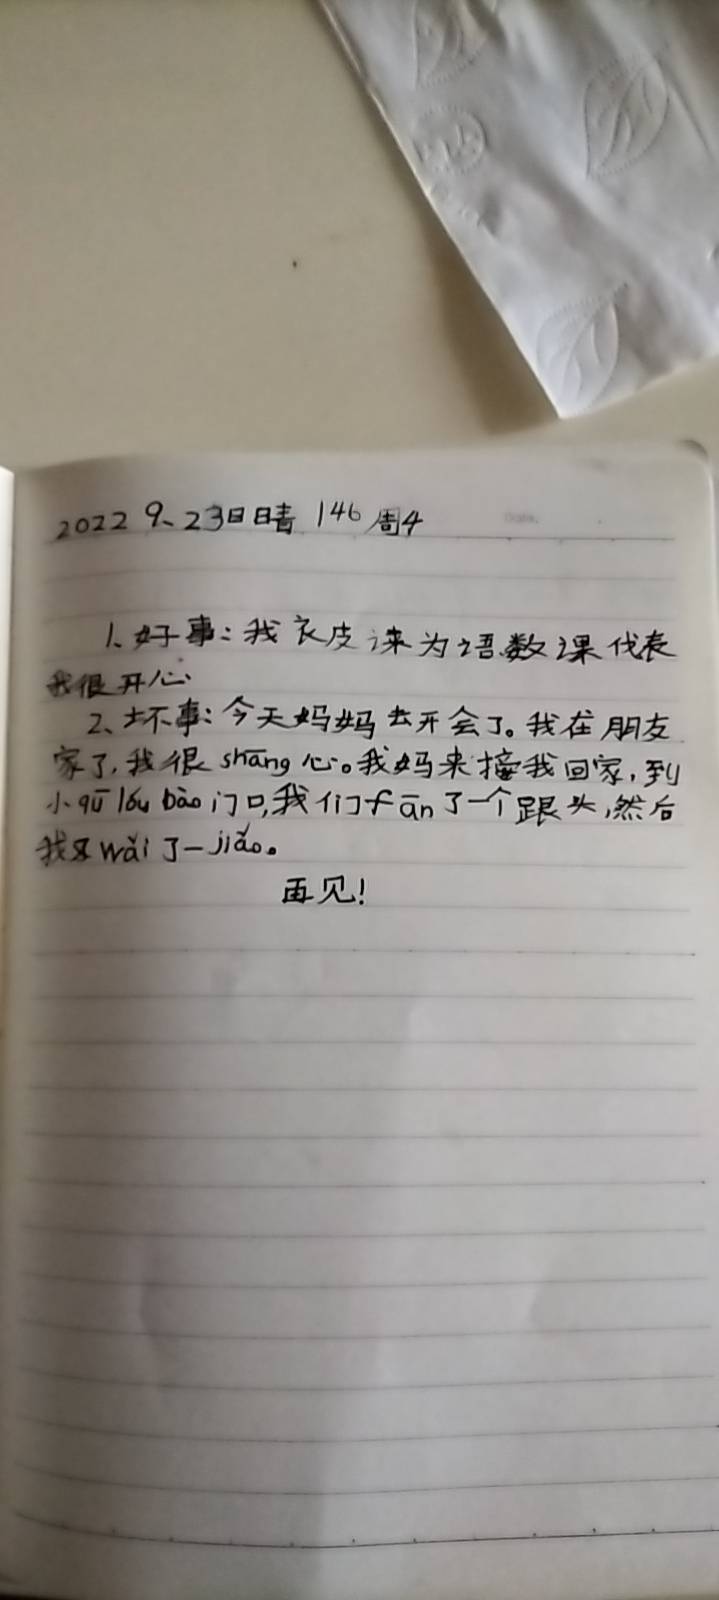 2022 9、23日晴 146 周4
1、好事：我衣皮谏为语数课代表
我很开心
2、坏事：今天妈妈去开会了。我在朋友
家了，我很shāng心。我妈来接我回家，到
小qū lóu bào门口，我们fān了一个跟头，然后
我又wǎi了一jiǎo。
再见！